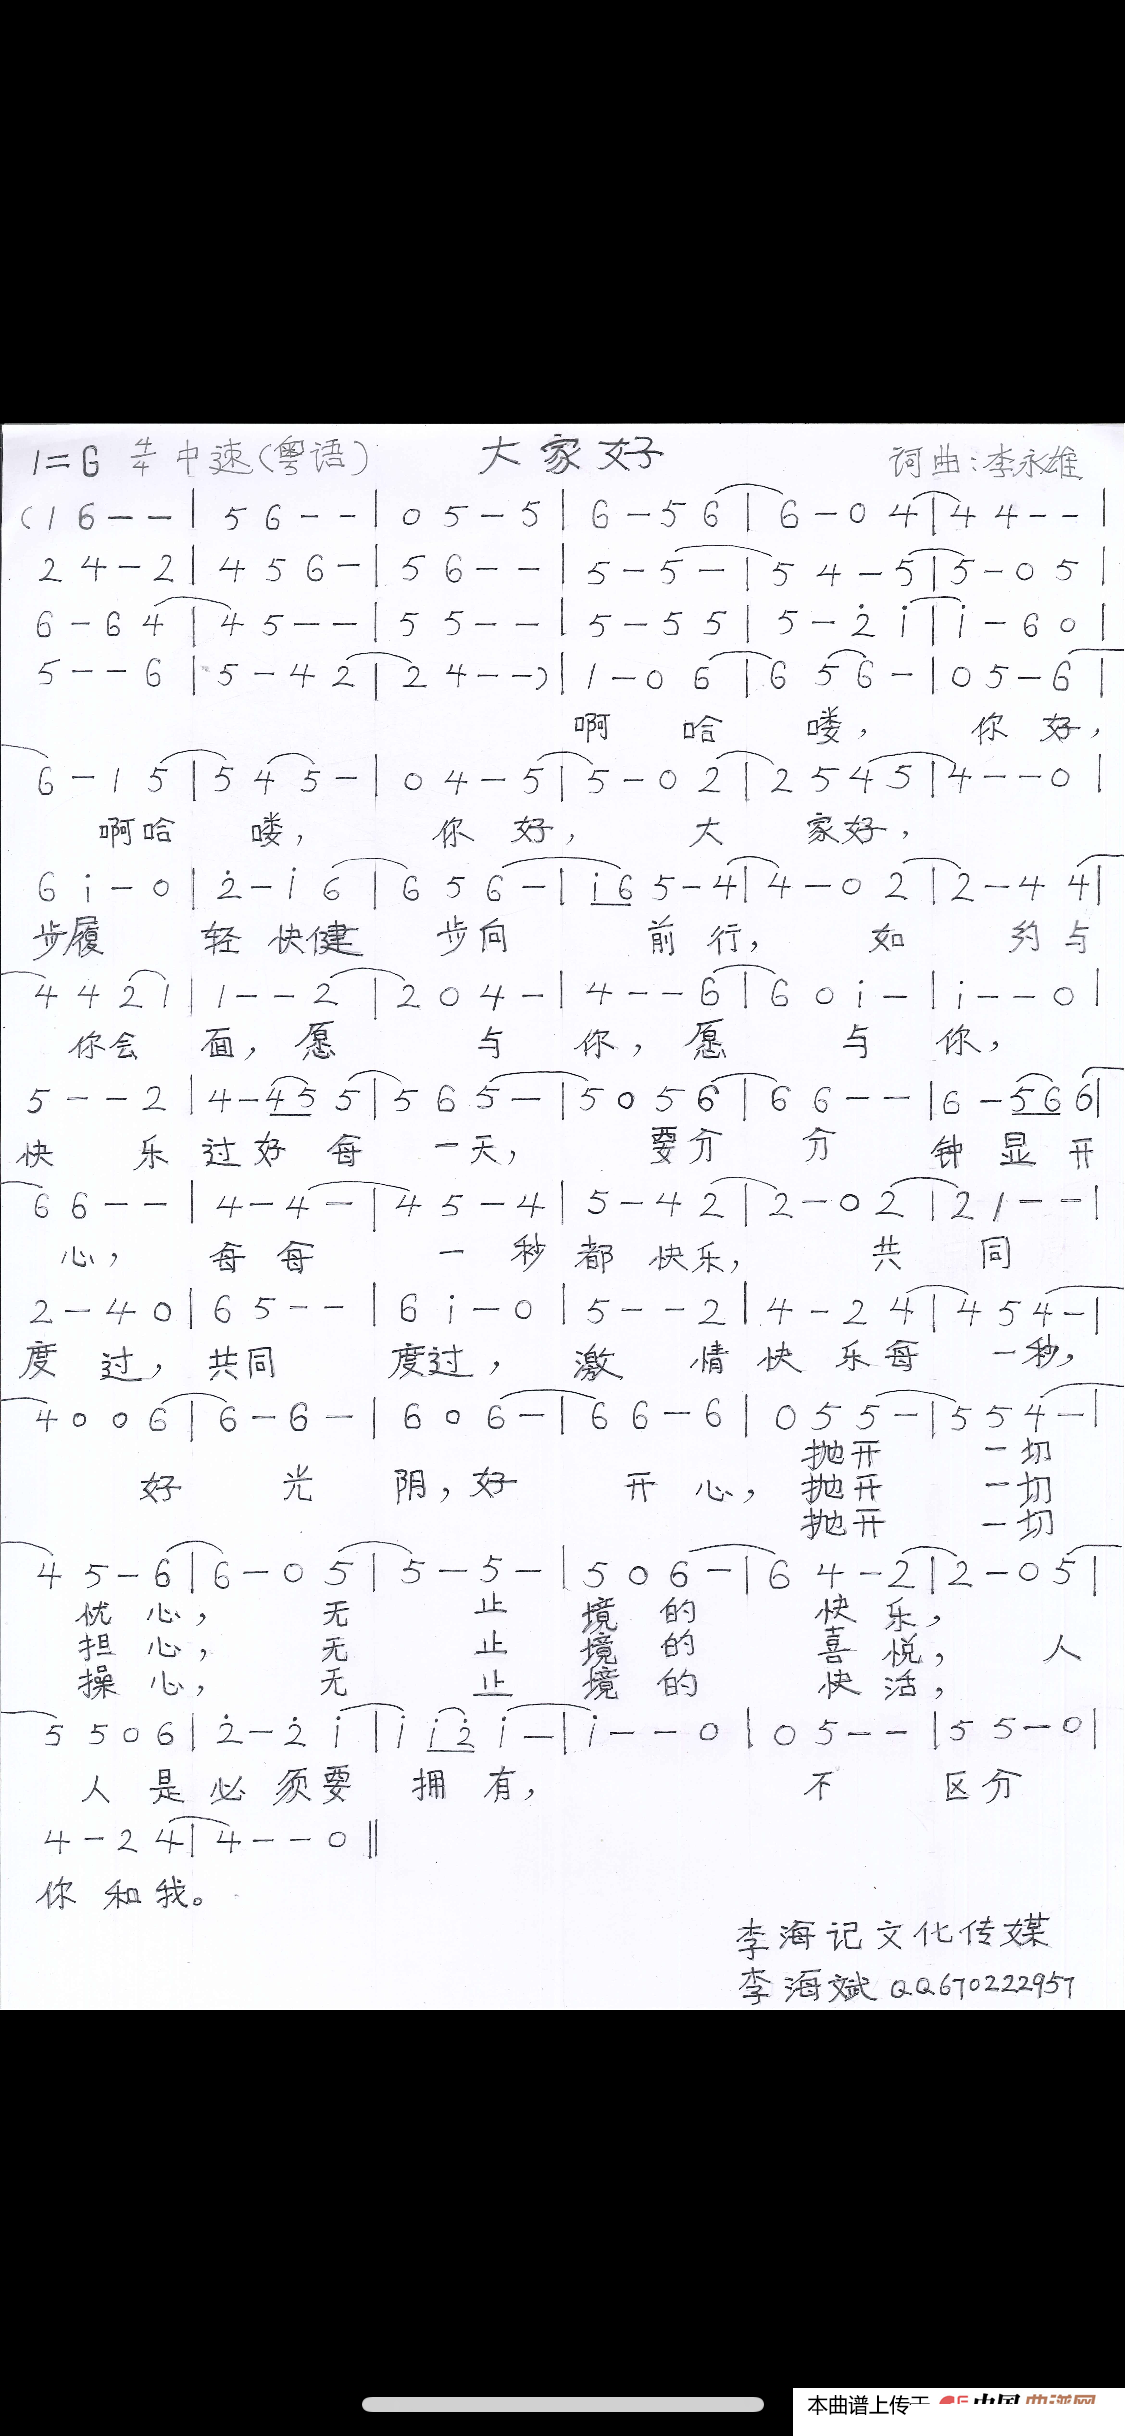 1=G 4/4 中速(粤语) 大家好 词曲:李永雄
(1 6 - - | 5 6 - - | 0 5 - 5 | 6 - 5 6 | 6 - 0 4 | 4 4 - - |
2 4 - 2 | 4 5 6 - | 5 6 - - | 5 - 5 - | 5 4 - 5 | 5 - 0 5 |
6 - 6 4 | 4 5 - - | 5 5 - - | 5 - 5 5 | 5 - 2̇ i | i - 6 0 |
5 - - 6 | 5 - 4 2 | 2 4 - -) | 1 - 0 6 | 6 5 6 - | 0 5 - 6 |
啊 哈 喽, 你 好,
6 - 1 5 | 5 4 5 - | 0 4 - 5 | 5 - 0 2 | 2 5 4 5 | 4 - - 0 |
啊哈 喽, 你 好, 大 家好,
6 i - 0 | 2̇ - i 6 | 6 5 6 - | i6 5 - 4 | 4 - 0 2 | 2 - 4 4 |
步履 轻 快健 步向 前 行, 如 约 与
4 4 2 1 | 1 - - 2 | 2 0 4 - | 4 - - 6 | 6 0 i - | i - - 0 |
你会 面, 愿 与 你, 愿 与 你,
5 - - 2 | 4 - 45 5 | 5 6 5 - | 5 0 5 6 | 6 6 - - | 6 - 56 6 |
快 乐 过好 每 一天, 要分 分 钟 显 开
6 6 - - | 4 - 4 - | 4 5 - 4 | 5 - 4 2 | 2 - 0 2 | 2 1 - - |
心, 每 每 一 秒 都 快乐, 共 同
2 - 4 0 | 6 5 - - | 6 i - 0 | 5 - - 2 | 4 - 2 4 | 4 5 4 - |
度 过, 共同 度过, 激 情 快 乐 每 一秒,
4 0 0 6 | 6 - 6 - | 6 0 6 - | 6 6 - 6 | 0 5 5 - | 5 5 4 - |
抛开 一切
好 光 阴, 好 开 心, 抛开 一切
抛开 一切
4 5 - 6 | 6 - 0 5 | 5 - 5 - | 5 0 6 - | 6 4 - 2 | 2 - 0 5 |
忧 心, 无 止 境 的 快 乐,
担 心, 无 止 境 的 喜 悦, 人
操 心, 无 止 境 的 快 活,
5 5 0 6 | 2̇ - 2̇ i | i i2̇ i - | i - - 0 | 0 5 - - | 5 5 - 0 |
人 是 必 须要 拥 有, 不 区分
4 - 2 4 | 4 - - 0 ‖
你 和 我。
李海记文化传媒
李海斌 QQ670222957
本曲谱上传于 中国曲谱网